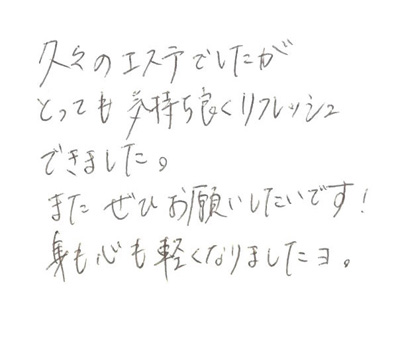 久々のエステでしたが
とっても気持ち良くリフレッシュ
できました。
また ぜひ お願いしたいです！
身も心も軽くなりましたヨ。